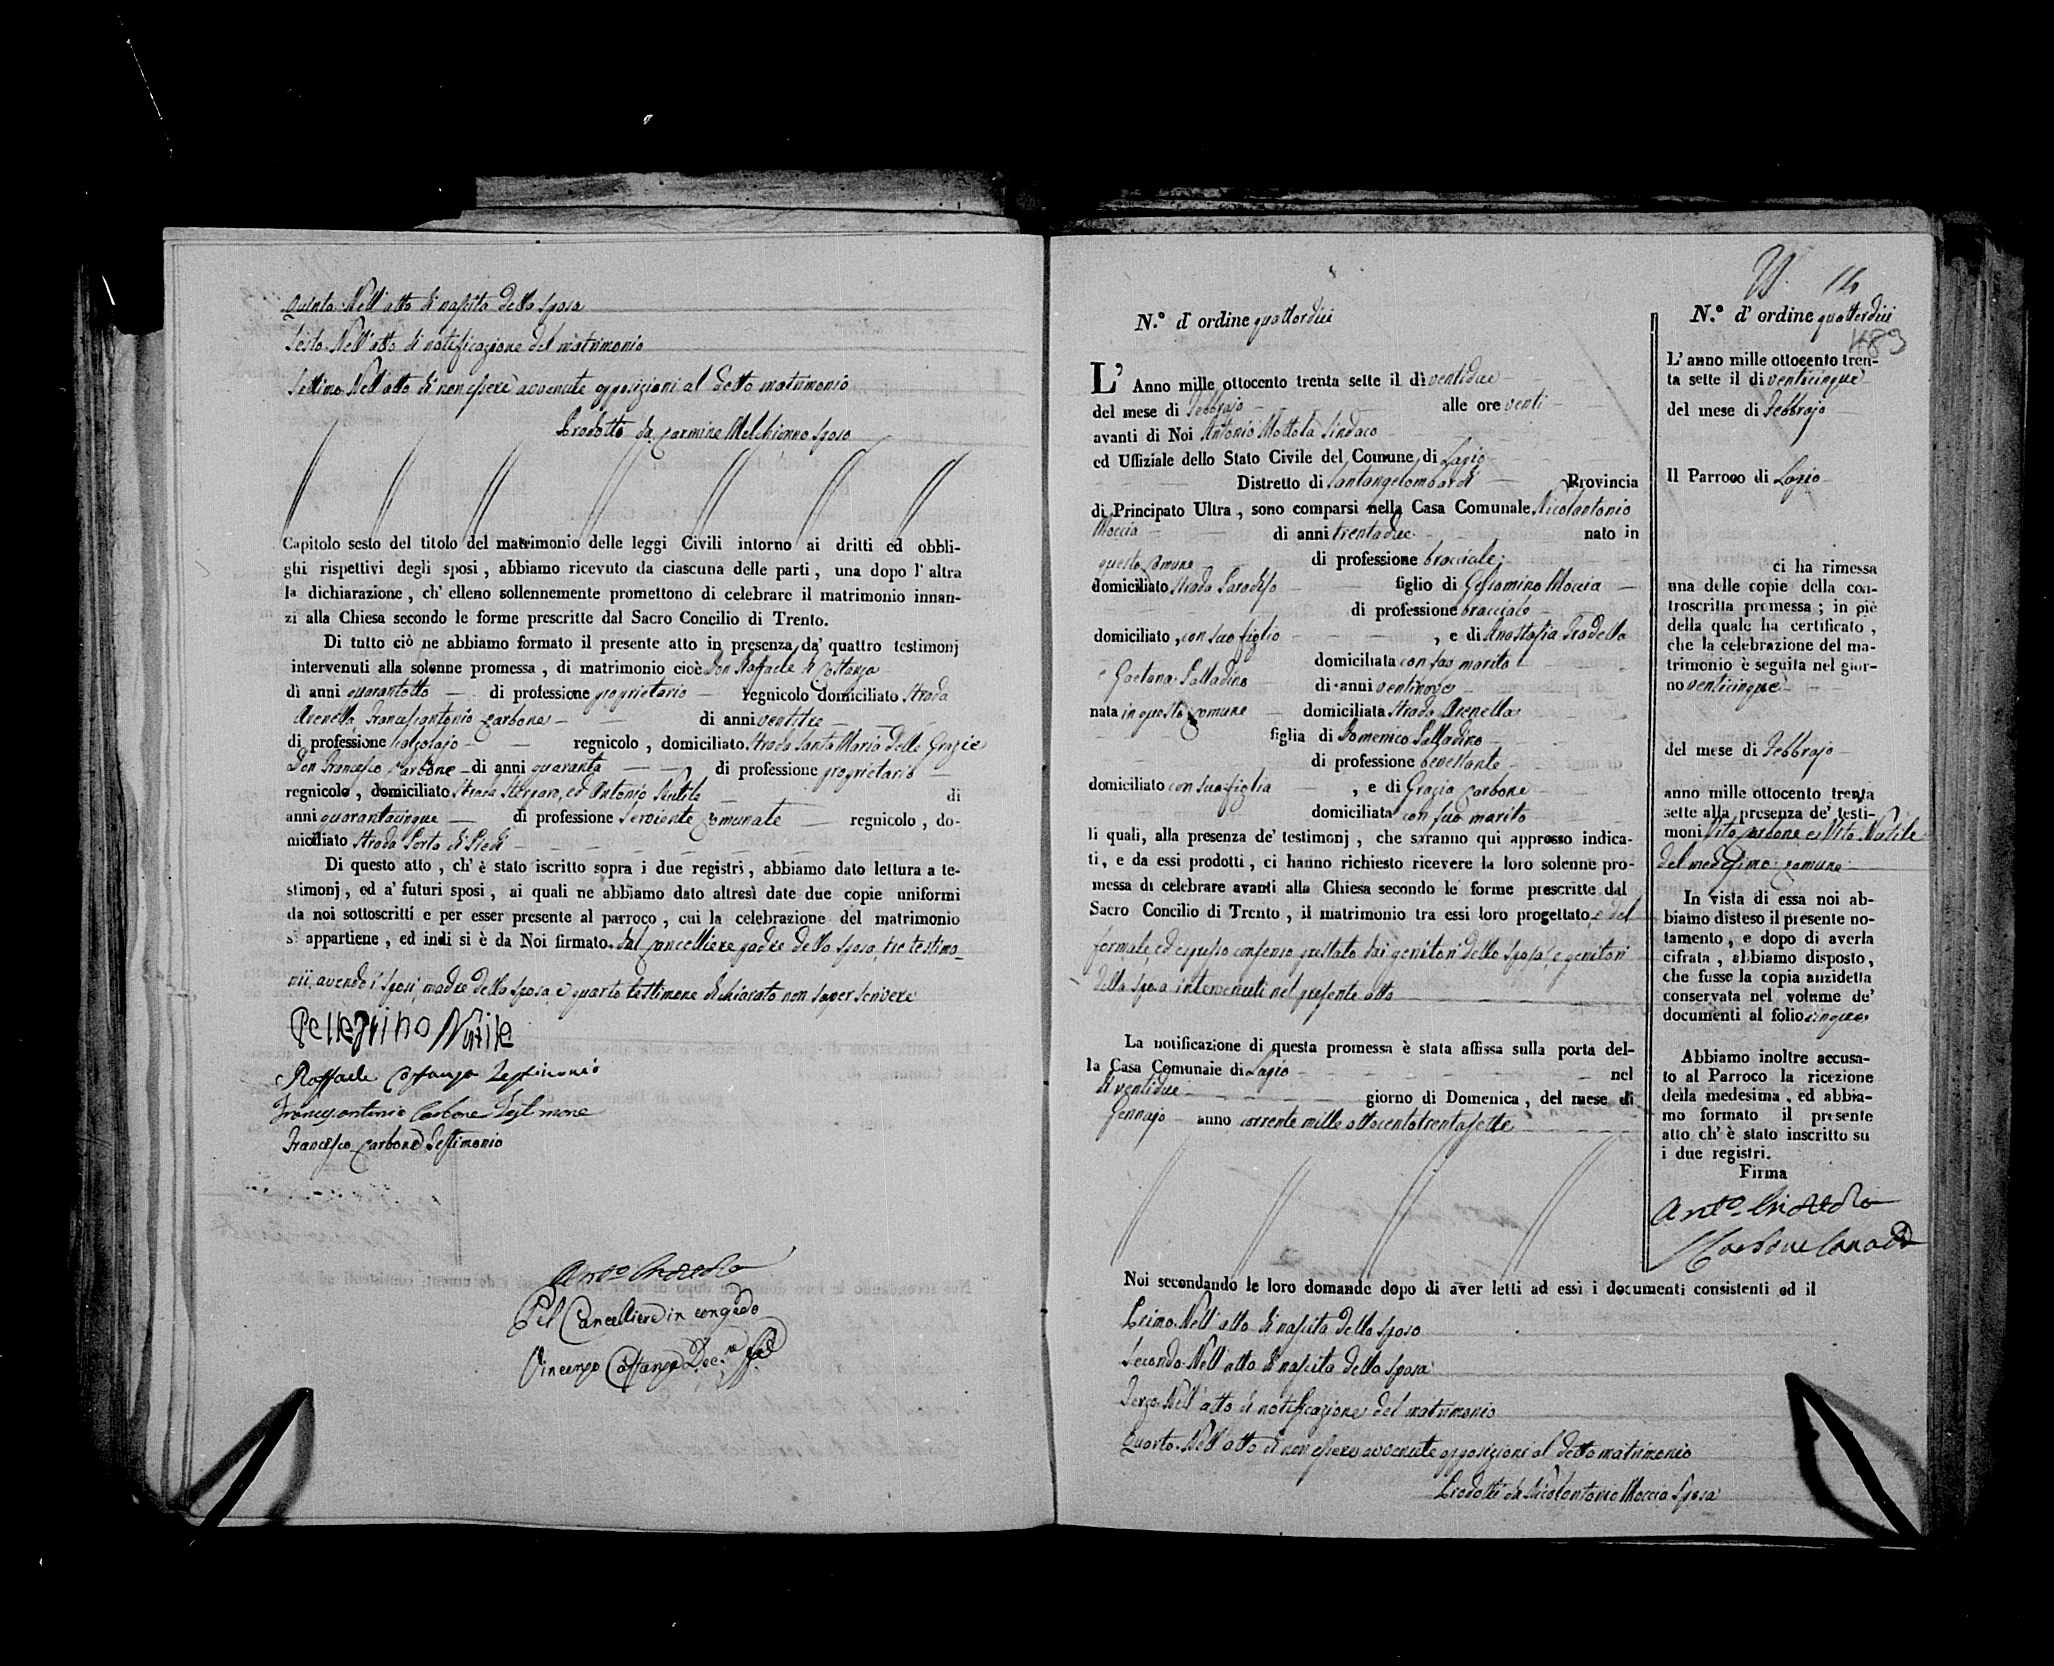 Quinto. Nell'atto di nascita della sposa
Sesto. Nell'atto di notificazione del matrimonio
Settimo. Nell'atto di non essere avvenute opposizioni al detto matrimonio
Prodotto da Carmine Melchionno sposo
Capitolo sesto del titolo del matrimonio delle leggi Civili intorno ai dritti ed obbli-
ghi rispettivi degli sposi, abbiamo ricevuto da ciascuna delle parti, una dopo l'altra
la dichiarazione, ch'elleno sollennemente promettono di celebrare il matrimonio innan-
zi alla Chiesa secondo le forme prescritte dal Sacro Concilio di Trento.
Di tutto ciò ne abbiamo formato il presente atto in presenza da' quattro testimonj
intervenuti alla solenne promessa, di matrimonio cioè Don Raffaele Costanza
di anni quarantotto di professione proprietario regnicolo domiciliato Strada
Arenella Francescantonio Carbone di anni ventitre
di professione regnicolo, domiciliato Strada Santa Maria delle Grazie
Don Francesco Carbone di anni quaranta di professione proprietario
regnicolo, domiciliato Strada ed Antonio Nutile di
anni quarantacinque di professione Serviente Comunale regnicolo, do-
miciliato Strada Porta di Piedi
Di questo atto, ch'è stato iscritto sopra i due registri, abbiamo dato lettura a te-
stimonj, ed a' futuri sposi, ai quali ne abbiamo dato altresì date due copie uniformi
da noi sottoscritti e per esser presente al parroco, cui la celebrazione del matrimonio
si appartiene, ed indi si è da Noi firmato. dal Cancelliere padre della sposa, tre testimo-
nii, avendo i sposi, madre della sposa e quarto testimone dichiarato non saper scrivere
Pellegrino Nutile
Raffaele Costanza Testimonio
Francescantonio Carbone Testimone
Francesco Carbone Testimonio
Pel Cancelliere in congedo
Vincenzo Costanza
14
N.° d'ordine quattordici
L'Anno mille ottocento trenta sette il dì ventidue
del mese di Febbrajo alle ore venti
avanti di Noi Antonio Mottola Sindaco
ed Uffiziale dello Stato Civile del Comune di Lapio
Distretto di Santangelombardi Provincia
di Principato Ultra, sono comparsi nella Casa Comunale Nicolantonio
Moccia di anni trentadue nato in
questo Comune di professione bracciale
domiciliato Strada Paradiso figlio di Gelsomino Moccia
di professione bracciale
domiciliato, con suo figlio, e di Anastasia Rodella
domiciliata con suo marito
e Gaetana Palladino di anni ventinove
nata in questo Comune domiciliata Strada Arenella
figlia di Domenico Palladino
di professione benestante
domiciliato con sua figlia, e di Grazia Carbone
domiciliata con suo marito
li quali, alla presenza de' testimonj, che saranno qui appresso indica-
ti, e da essi prodotti, ci hanno richiesto ricevere la loro solenne pro-
messa di celebrare avanti alla Chiesa secondo le forme prescritte dal
Sacro Concilio di Trento, il matrimonio tra essi loro progettato, e del
formale, ed espresso consenso prestato dai genitori dello sposo, e genitori
della sposa intervenuti nel presente atto
La notificazione di questa promessa è stata affissa sulla porta del-
la Casa Comunale di Lapio nel
dì ventidue giorno di Domenica, del mese di
Gennajo anno corrente mille ottocentotrentasette
Noi secondando le loro domande dopo di aver letti ad essi i documenti consistenti ed il
Primo. Nell'atto di nascita dello sposo
Secondo. Nell'atto di nascita della sposa
Terzo. Nell'atto di notificazione del matrimonio
Quarto. Nell'atto di non essere avvenute opposizioni al detto matrimonio
Prodotti da Nicolantonio Moccia sposo
N.° d'ordine quattordici
489
L'anno mille ottocento tren-
ta sette il dì venticinque
del mese di Febbrajo
Il Parroco di Lapio
ci ha rimessa
una delle copie della con-
troscritta promessa; in piè
della quale ha certificato,
che la celebrazione del ma-
trimonio è seguita nel gior-
no venticinque
del mese di Febbrajo
anno mille ottocento trenta
sette alla presenza de' testi-
moni Vito Carbone e Vito Nutile
del medesimo Comune
In vista di essa noi ab-
biamo disteso il presente no-
tamento, e dopo di averla
cifrata, abbiamo disposto,
che fusse la copia anzidetta
conservata nel volume de'
documenti al folio cinque
Abbiamo inoltre accusa-
to al Parroco la ricezione
della medesima, ed abbia-
mo formato il presente
atto ch'è stato inscritto su
i due registri.
Firma